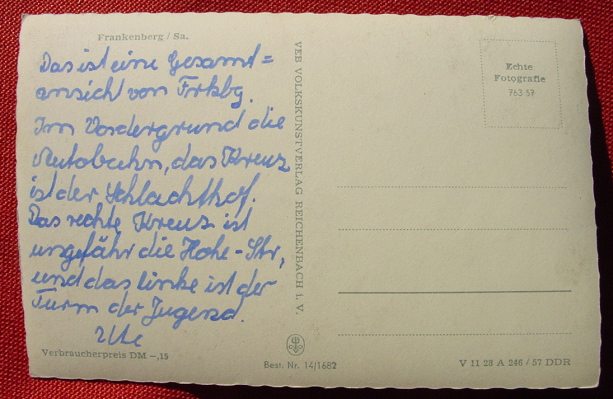 Frankenberg / Sa.
Das ist eine Gesamt=
ansicht von Frkbg.
Im Vordergrund die
Autobahn, das Kreuz
ist der Schlachthof.
Das rechte Kreuz ist
ungefähr die Hohe-Str,
und das linke ist der
Turm der Jugend.
Ute
Verbraucherpreis DM -,15
VEB VOLKSKUNSTVERLAG REICHENBACH i. V.
Best. Nr. 14/1682
Echte
Fotografie
763 57
V 11 28 A 246 / 57 DDR